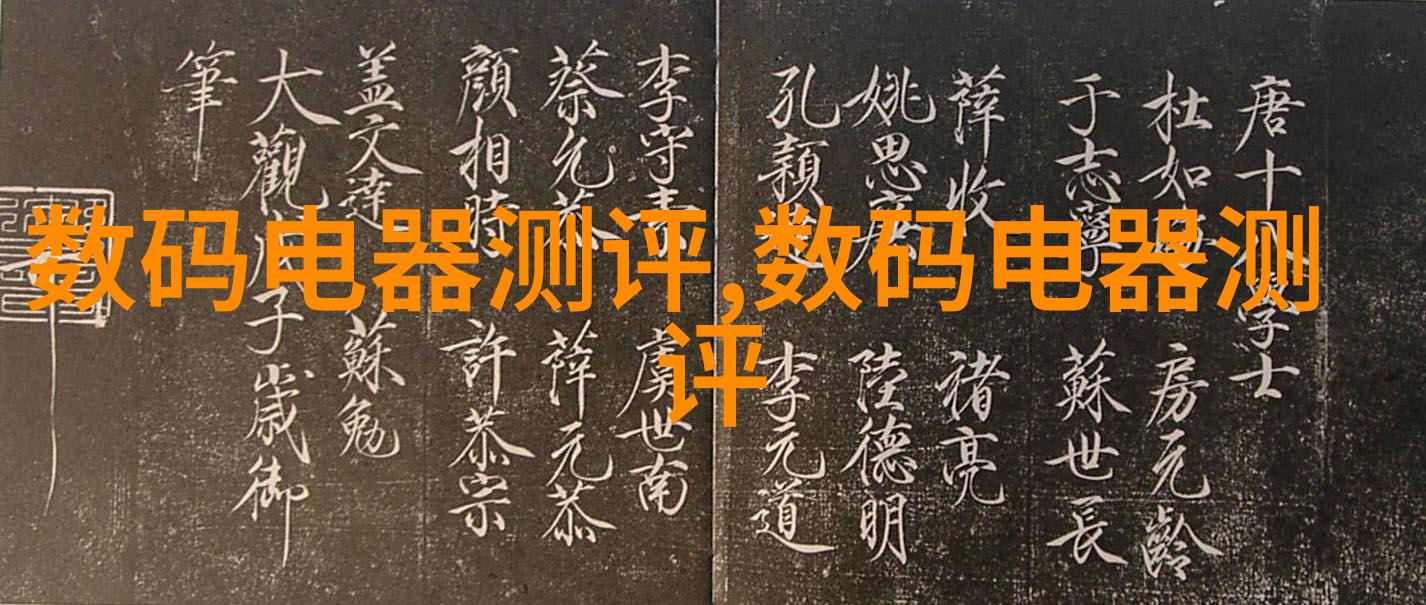 唐十八學士
杜如晦 房元齡
于志寧 蘇世長
薛收 褚亮
姚思廉 陸德明
孔穎達 李元道
李守素 虞世南
蔡允恭 薛元恭
顔相時 許恭宗
盖文達 蘇勉
大觀庚子歲御
筆
数码电器测评,数码电器测
评